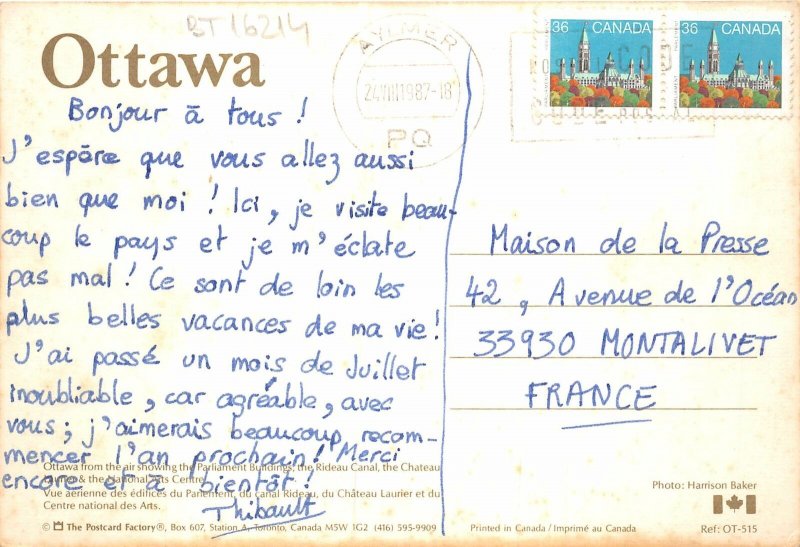 BT 16214
Ottawa
AYLMER
24 VIII 1987-18
PQ
36 CANADA
36 CANADA
CODE
Bonjour à tous !
J'espère que vous allez aussi
bien que moi ! Ici, je visite beau-
coup le pays et je m'éclate
pas mal ! Ce sont de loin les
plus belles vacances de ma vie !
J'ai passé un mois de Juillet
inoubliable, car agréable, avec
vous ; j'aimerais beaucoup recom-
mencer l'an prochain ! Merci
encore et à bientôt !
Thibault
Maison de la Presse
42, Avenue de l'Océan
33930 MONTALIVET
FRANCE
Ottawa from the air showing the Parliament Buildings, the Rideau Canal, the Chateau
Laurier & the National Arts Centre.
Vue aérienne des édifices du Parlement, du canal Rideau, du Château Laurier et du
Centre national des Arts.
© The Postcard Factory®, Box 607, Station A, Toronto, Canada M5W 1G2 (416) 595-9909
Printed in Canada / Imprimé au Canada
Photo: Harrison Baker
Ref: OT-515